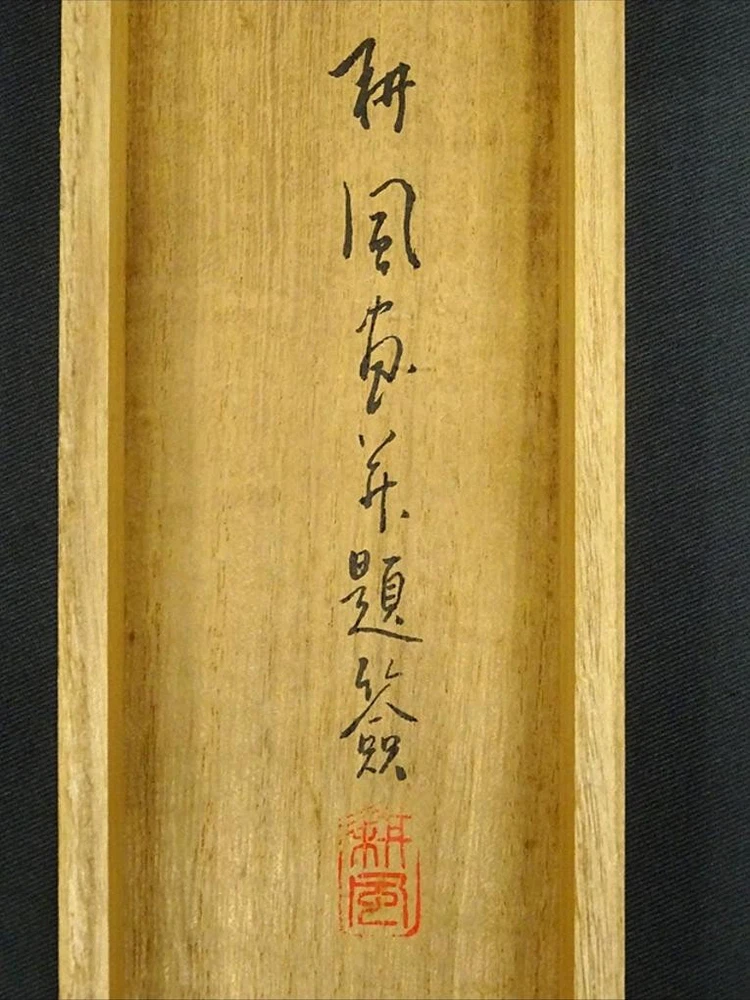 耕風画并題簽
耕風